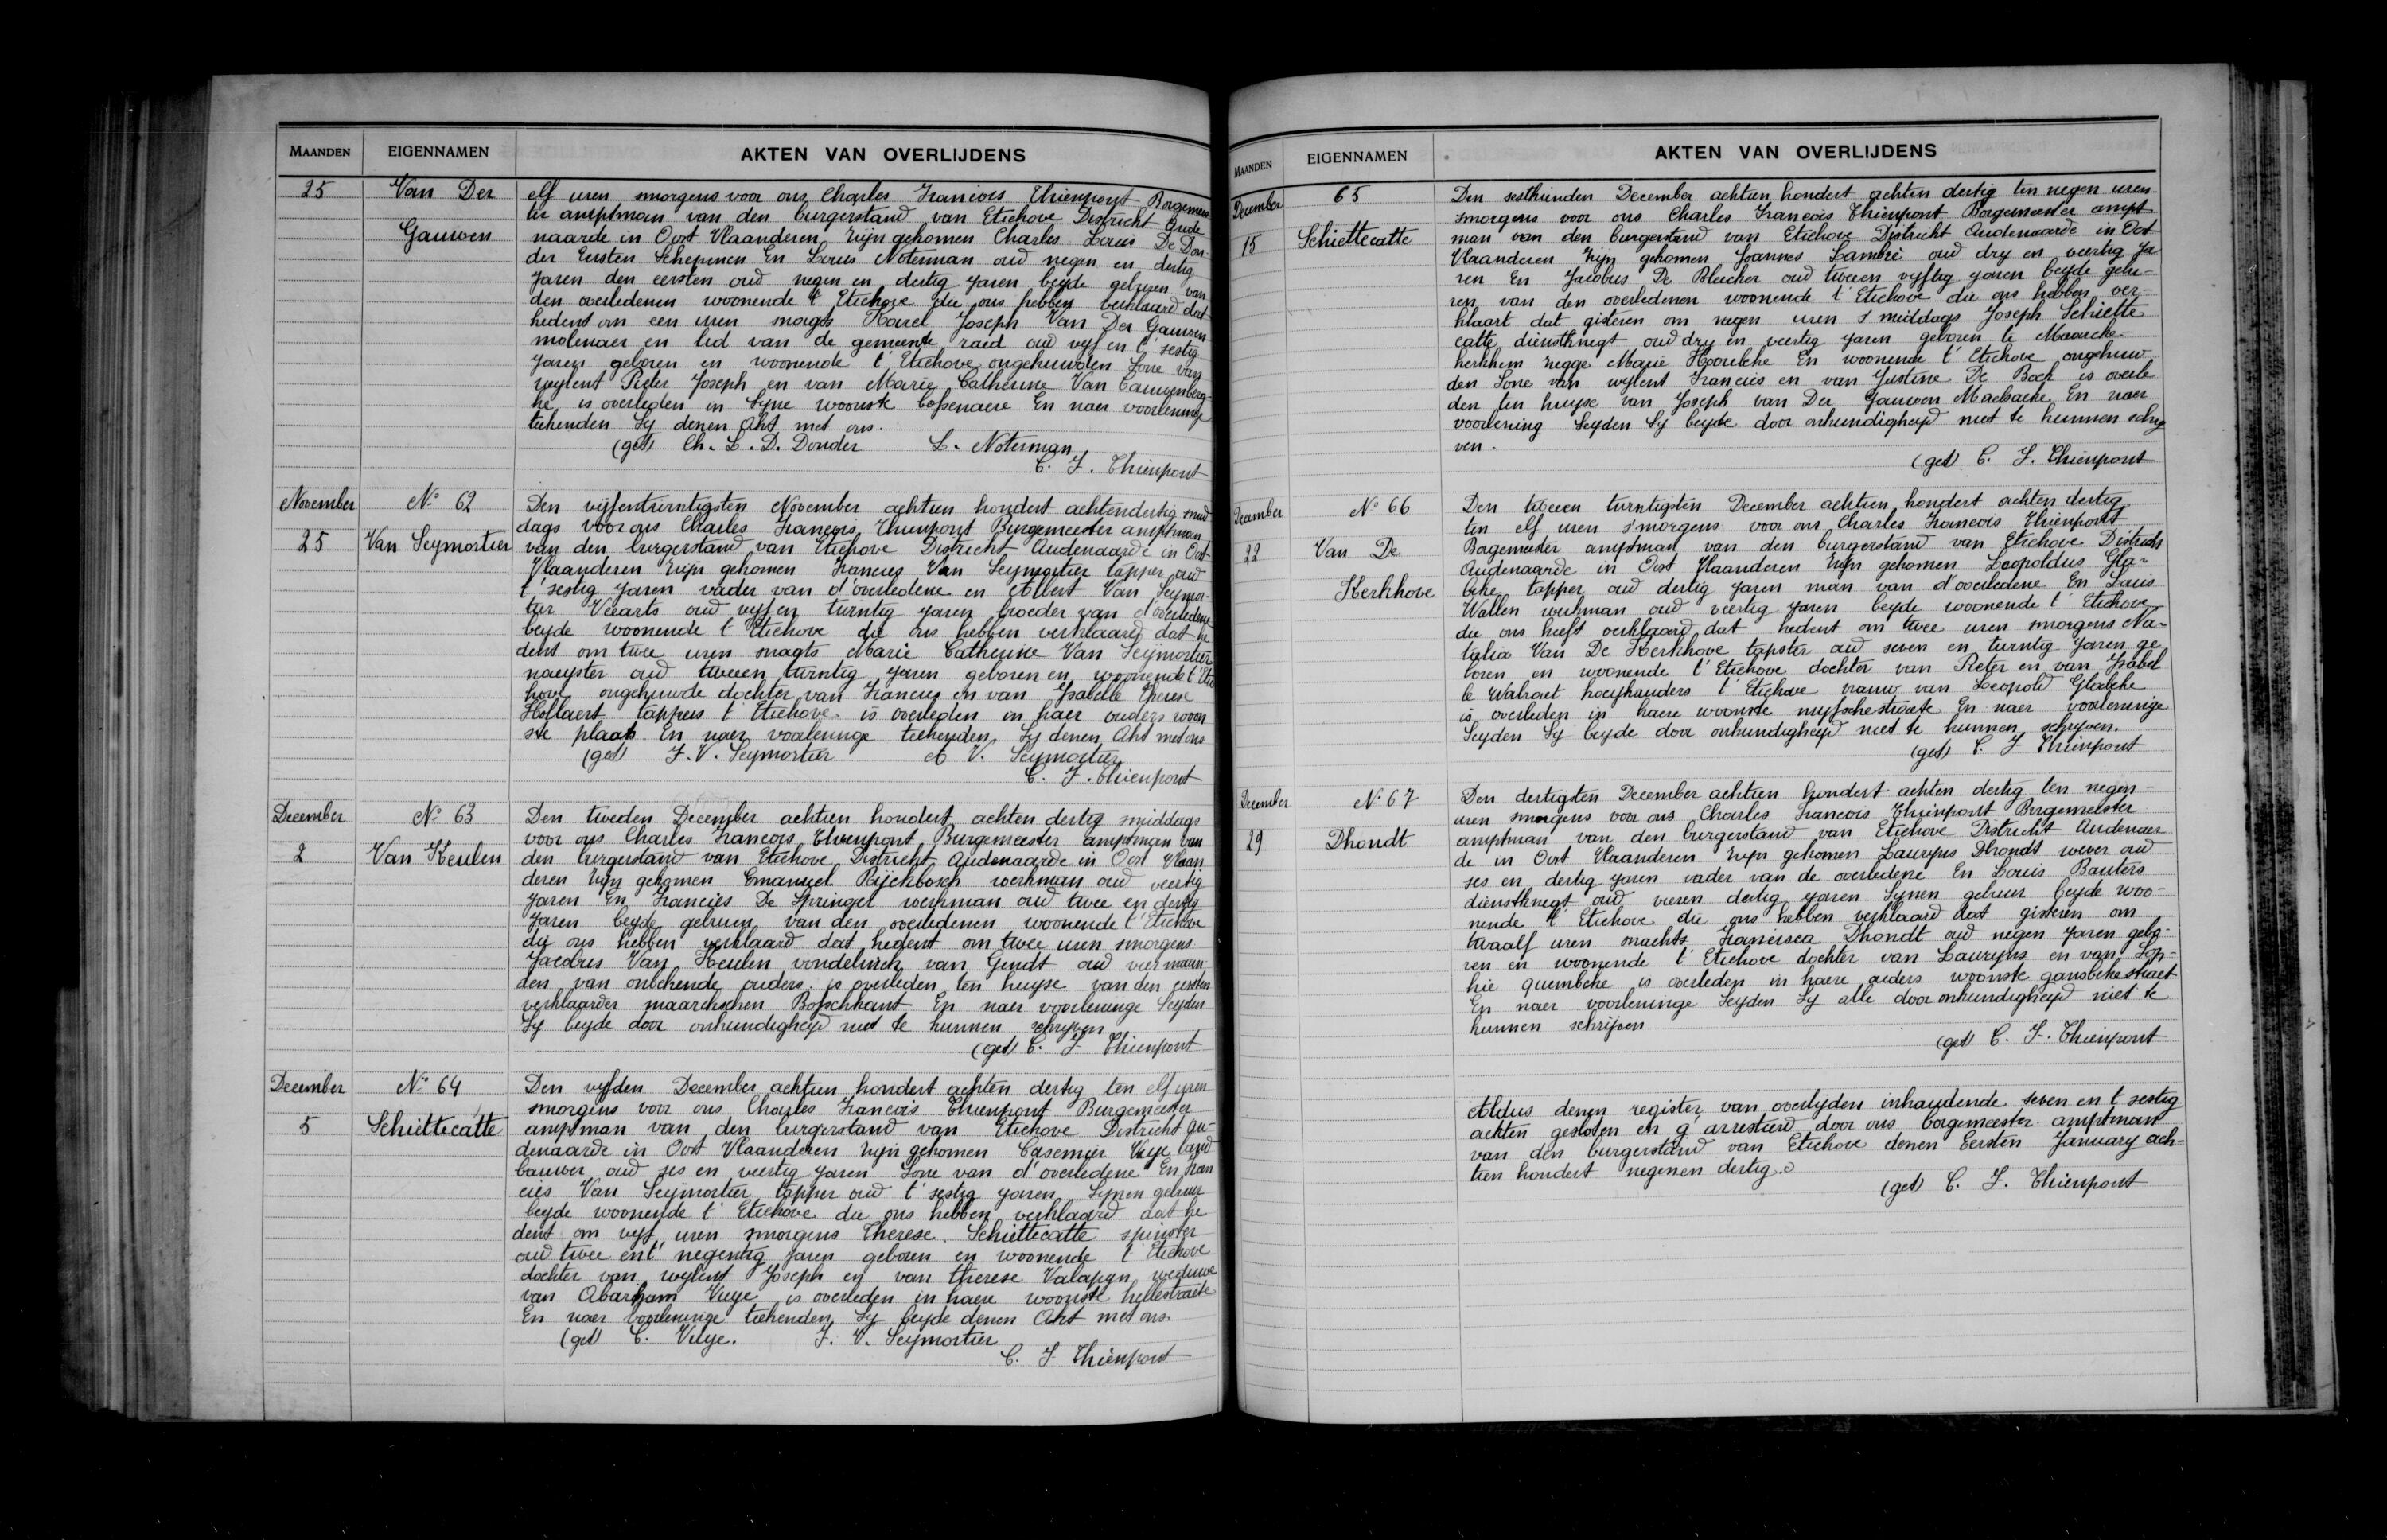 MAANDEN EIGENNAMEN AKTEN VAN OVERLIJDENS
25 Van Der Gauwen
elf uren smorgens voor ons Charles Francois Thienpont Borgemees-
ter amptman van den burgerstand van Etichove District Aude
naarde in Oost Vlaanderen zijn gekomen Charles Louis De Don-
der Eersten Schepenen En Louis Noterman oud negen en dertig
Jaren den eersten oud negen en dertig jaren beyde geburen van
den overledenen woonende t' Etichove die ons hebben verklaard dat
hedent om een uren snagts Karel Joseph Van Der Gauwen
molenaer en lid van de gemeente raed oud vyf en t' sestig
Jaren geboren en woonende t' Etichove ongehuwden Sone van
weylent Pieter Joseph en van Marie Catherine Van Cauwenberg-
he is overleden in Syne woonste Bossenaere En naer voorleninge
teekenden Sy denen Akt met ons.
(get) Ch. L. D. Donder L. Noterman
C. F. Thienpont
November 25 No 62 Van Seymortier
Den vijfentwintigsten November achtien hondert achtendertig smid
dags voor ons Charles Francois Thienpont Burgemeester amptman
van den burgerstand van Etichove District Audenaarde in Oost
Vlaanderen zijn gekomen Francies Van Seymortier tapper oud
t' sestig jaren vader van d'overledene en Albert Van Seymor-
tier Veearts oud vyf en twintig jaren broeder van d'overledene
beyde woonende t' Etichove die ons hebben verklaard dat he
dent om twee uren snagts Marie Catherine Van Seijmortier
naeyster oud tweeen twintig jaren geboren en woonende t' Eti
hove ongehuwde dochter van Francies en van Isabelle Therese
Hollaert tappers t' Etichove is overleden in haer ouders woon
ste plaats En naer voorleninge teekenden Sy denen Akt met ons
(get) F. V. Seymortier A V. Seymortier
C. F. Thienpont
December 2 No 63 Van Keulen
Den tweden December achtien hondert achten dertig smiddags
voor ons Charles Francois Thienpont Burgemeester amptman van
den burgerstand van Etichove District Audenaarde in Oost Vlaan
deren zijn gekomen Emanuel Rijckbosch werkman oud veertig
jaren En Francies De Springel werkman oud twee en dertig
jaren beyde gebuuren van den overledenen woonende t' Etichove
die ons hebben verklaard dat hedent om twee uren smorgens
Jacobus Van Keulen vondelinck van Gendt oud vier maan-
den van onbekende ouders is overleden ten huyse van den eersten
verklaarder maarckschen Bosschkant En naer voorleninge Seyden
Sy beyde door onkundigheyd niet te kunnen schrijven
(get) C. F Thienpont
December 5 No 64 Schiettecatte
Den vyfden December achtien hondert achten dertig ten elf uren
smorgens voor ons Charles Francois Thienpont Burgemeester
amptman van den burgerstand van Etichove District Au-
denaarde in Oost Vlaanderen zijn gekomen Casemier Vuye land
bauwer oud ses en veertig jaren Sone van d'overledene En Fran
cies Van Seijmortier tapper oud t' sestig jaren Synen gebuur
beyde woonende t' Etichove die ons hebben verklaard dat he
dent om vyf uren smorgens Therese Schiettecatte spinster
oud twee en t' negentig jaren geboren en woonende t' Etichove
dochter van wylent Joseph en van therese Valapyn weduwe
van Abarham Vuye is overleden in haere woonste hellestraete
En naer voorleninge teekenden Sy beyde denen Akt met ons.
(get) C. Vuye. F. V. Seijmortier
C. F Thienpont
MAANDEN EIGENNAMEN AKTEN VAN OVERLIJDENS
December 15 65 Schiettecatte
Den sesthienden December achtien hondert achten dertig ten negen uren
smorgens voor ons Charles Francois Thienpont Borgemeester ampt
man van den burgerstand van Etichove District Audenaarde in Oost
Vlaanderen zijn gekomen Joannes Lambre oud dry en veertig ja
ren En Jacobus De Bleecker oud tweeen vyftig jaren beyde gebu-
ren van den overledenen woonende t' Etichove die ons hebben ver-
klaart dat gisteren om negen uren s' middags Joseph Schiette
catte diensthnegt oud dry en veertig jaren geboren te Maarcke-
kerkhem zegge Marie Hoorebeke En woonende t' Etichove ongehuw
den Sone van wylent Francies en van Justine De Bock is overle
den ten huyse van Joseph van Der Gauwen Maelsacke En naer
voorlening Seyden Sy beyde door onkundigheyd niet te kunnen schry
ven.
(get) C. F. Thienpont
December 22 No 66 Van De Kerkhove
Den tweeen twintigsten December achtien hondert achten dertig
ten elf uren s'morgens voor ons Charles Francois Thienpont
Borgemeester amptman van den burgerstand van Etichove District
Audenaarde in Oost Vlaanderen zijn gekomen Leopoldus Gla-
beke tapper oud dertig jaren man van d'overledene En Louis
Wallen werkman oud veertig jaren beyde woonende t' Etichove
die ons heeft verklaard dat hedent om twee uren smorgens Na-
talia Van De Kerkhove tapster oud seven en twintig jaren ge
boren en woonende t' Etichove dochter van Pieter en van Isabel
le Walraet hoeyhouders t' Etichove vrauw van Leopold Glabeke
is overleden in haere woonste nuyfschestraete En naer voorleninge
Seyden Sy beyde door onkundigheyd niet te kunnen schrijven.
(get) C. F Thienpont
December 29 No 67 Dhondt
Den dertigsten December achtien hondert achten dertig ten negen-
uren smorgens voor ons Charles Francois Thienpont Burgemeester
amptman van den burgerstand van Etichove District Audenaer
de in Oost Vlaanderen zijn gekomen Lauryns Dhondt wever oud
ses en dertig jaren vader van de overledene En Louis Bauters
diensthnegt oud vieren dertig jaren Synen gebuur beyde woo-
nende t' Etichove die ons hebben verklaard dat gisteren om
twaalf uren snachts Francisca Dhondt oud negen jaren gebo-
ren en woonende t' Etichove dochter van Lauryns en van Sop-
hie quembeke is overleden in haere ouders woonste gansbekestraet
En naer voorleninge Seyden Sy alle door onkundigheyd niet te
kunnen schrijven
(get) C. F. Thienpont
Aldus denen register van overlijden inhaudende seven en t' sestig
achten gesloten en g' arresteerd door ons borgemeester amptman
van den burgerstand van Etichove denen Eersten January ach-
tien hondert negenen dertig.
(get) C. F. Thienpont